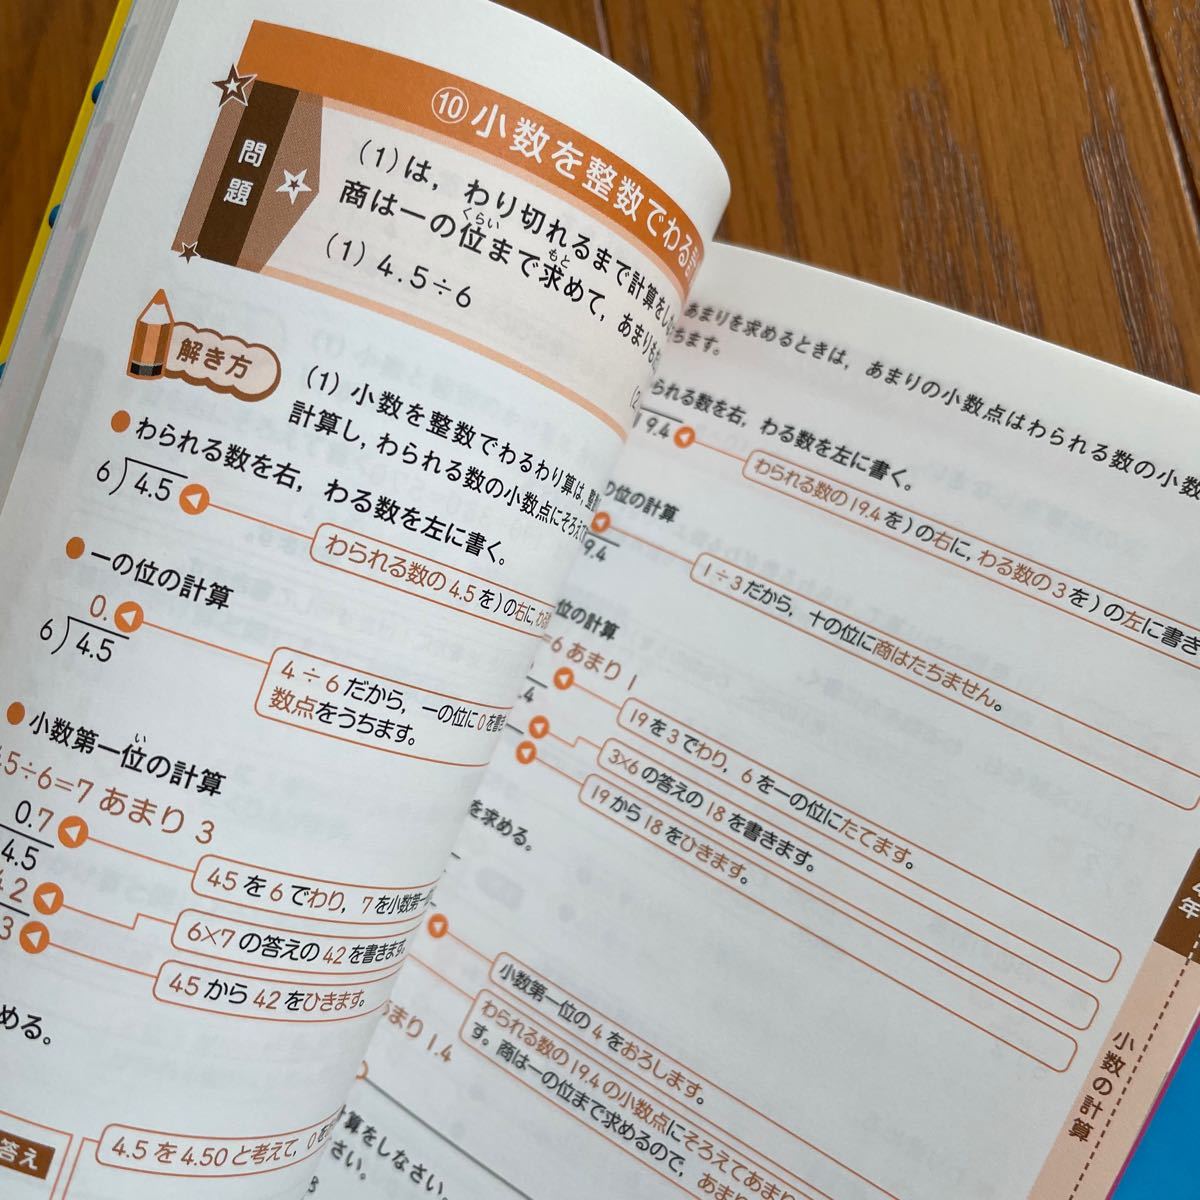 ⑩小数を整数でわる
問題
(1)は，わり切れるまで計算をし
商は一の位まで求めて，あまりも
くらい
もと
(1) 4.5÷6
解き方
(1) 小数を整数でわるわり算は，整
計算し，わられる数の小数点にそろえ
わられる数を右，わる数を左に書く。
6)4.5
わられる数の4.5を)の右に，わ
一の位の計算
0.
6)4.5
4÷6だから，一の位に0を書き
数点をうちます。
小数第一位の計算
い
.5÷6=7 あまり 3
0.7
4.5
4 2
3
45を6でわり，7を小数第一
6×7の答えの42を書きます。
45から42をひきます。
める。
4.5を4.50と考えて，0を
答え
あまりを求めるときは，あまりの小数点はわられる数の小数
ちます。
(2)
られる数を右，わる数を左に書く。
19.4
わられる数の19.4を)の右に，わる数の3を)の左に書き
の位の計算
9.4
1÷3だから，十の位に商はたちません。
位の計算
=6 あまり 1
.4
19を3でわり，6を一の位にたてます。
3×6の答えの18を書きます。
19から18をひきます。
を求める。
小数第一位の4をおろします。
わられる数の19.4の小数点にそろえてあまり
す。商は一の位まで求めるので，あま
あまり 1.4
計算をしなさい。
さい。
年
小数の計算